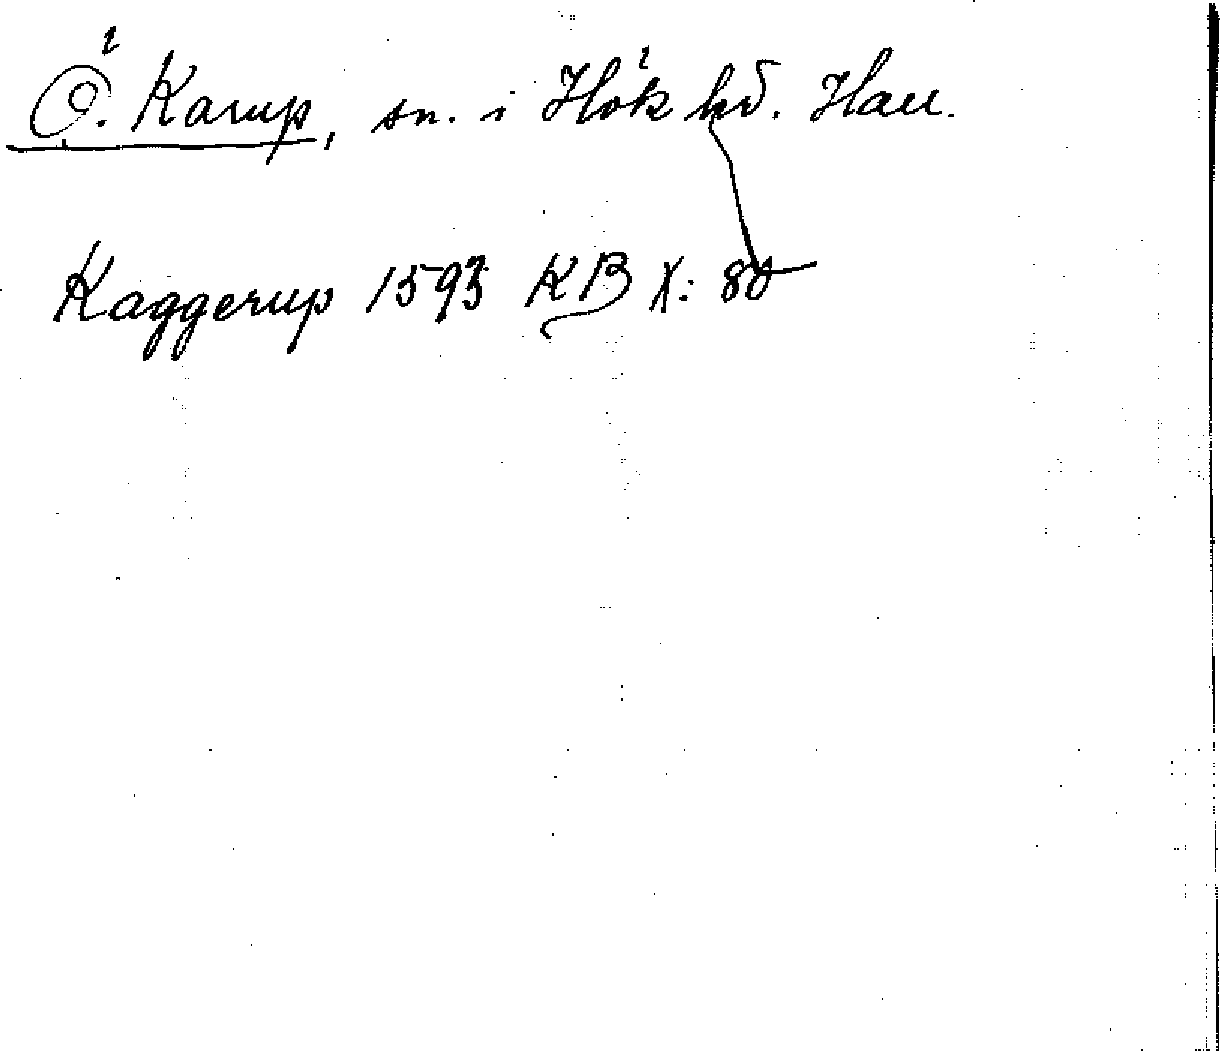 Ö. Karup, sn. i Hök hd. Hall.
Kaggerup 1593 KB X: 80